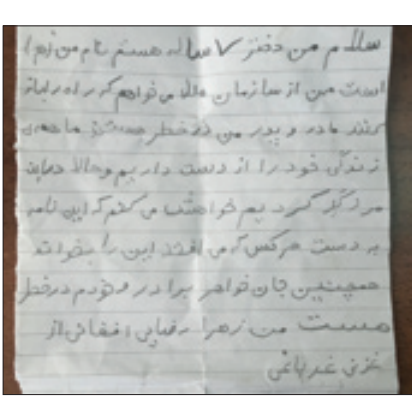 سلام من دختر ۷ ساله هستم نام من زهرا
است من از سازمان ملل می خواهم که راه را باز
کنند مادر و پدر من در خطر هستند ما همه ی
زندگی خود را از دست داریم و حالا در این
مرز گیر کردیم خواهش می کنم که این نامه
به دست هر کس که می افتد این را بخواند
همچنین جان خواهر برادر و خودم در خطر
هست من زهرا رضایی افغانی از
غزنی